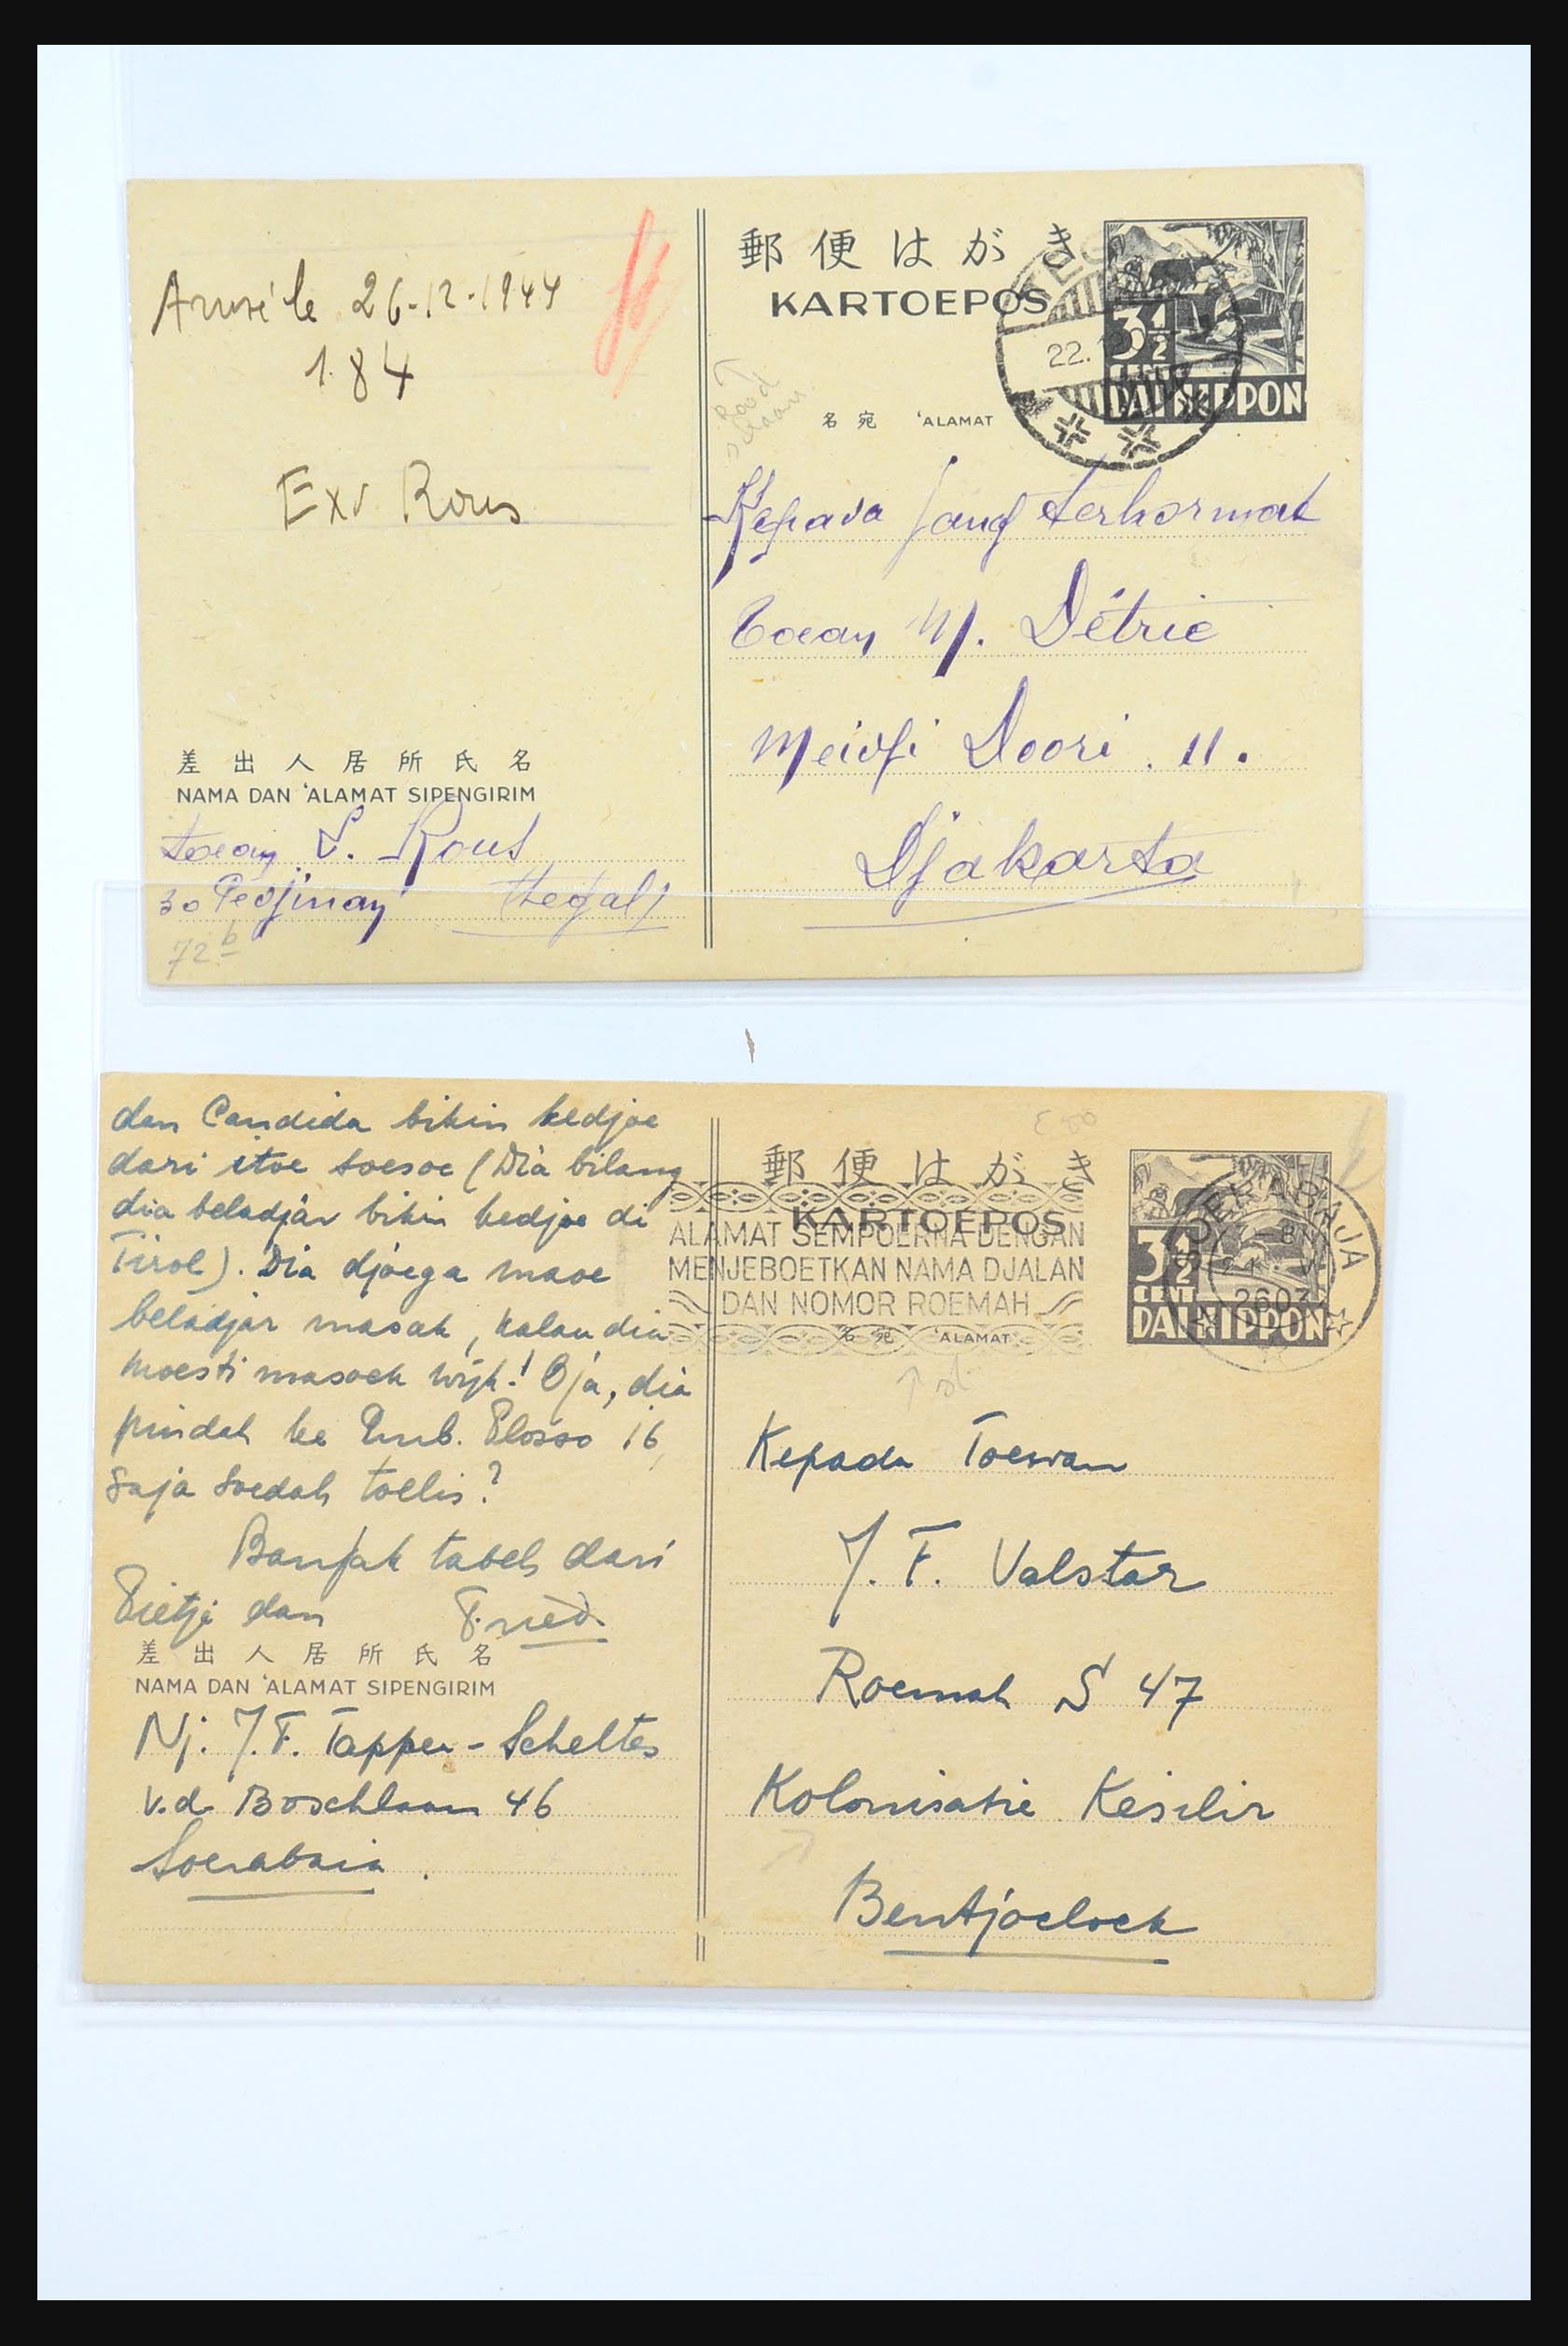 Arrivé le 26-12-1944
184
Exp Rous
差出人居所氏名
NAMA DAN 'ALAMAT SIPENGIRIM
toean V. Rous
30 Pedjinan (tegal)
72 b
郵便はがき
KARTOEPOS
3 1/2
CENT
DAI NIPPON
22.
名宛 'ALAMAT
Kepada jang terhormat
Toean M. Détrie
Meidji Doori. 11.
Djakarta
dan Candida bikin kedjoe
dari itoe soesoe (Dia bilang
dia beladjar bikin kedjoe di
Tirol). Dia djoega maoe
beladjar masak, kalau dia
moesti masoek wijk! O ja, dia
pindah ke Emb. Plosso 16,
saja soedah toelis?
Banjak tabeh dari
Pietje dan Fried.
差出人居所氏名
NAMA DAN 'ALAMAT SIPENGIRIM
Nj. J.F. Tapper-Scheltes
v.d. Boschlaan 46
Soerabaia.
郵便はがき
KARTOEPOS
ALAMAT SEMPOERNA DENGAN
MENJEBOETKAN NAMA DJALAN
DAN NOMOR ROEMAH
名宛 'ALAMAT
3 1/2
CENT
DAI NIPPON
SOERABAJA
2603
Kepada Toewan
J. F. Valstar
Roemah S 47
Kolonisatie Kesilir
Bentjoeloek